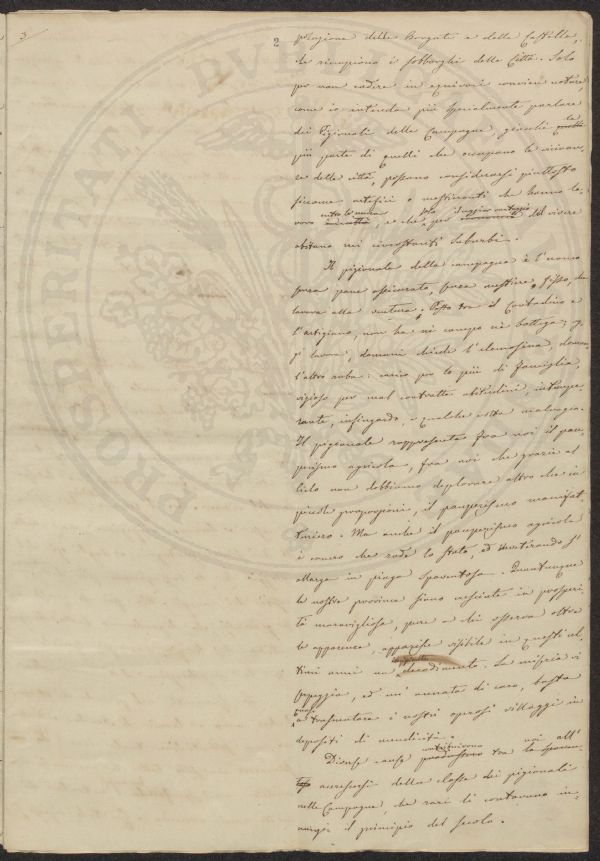 3
2
polazione delle Borgate e delle Castella,
che riempiono i sobborghi delle Città. Solo
per non cadere in equivoci conviene notare,
come io intenda più specialmente parlare
dei Pigionali delle Campagne, giacchè la
più parte di quelli che occupano le vicinan-
ze delle città, possono considerarsi piuttosto
siccome artefici o mestieranti che hanno la-
voro entro le mura, e che solo per maggior vantaggio del vivere
abitano nei circostanti suburbi.
Il pigionale della campagna è l'uomo
senza pane assicurato, senza mestiere fisso, che
lavora alla ventura. Posto tra il Contadino e
l'artigiano, non ha nè campo nè bottega; og-
gi lavora, domani chiede l'elemosina, doman
l'altro ruba: carico per lo più di famiglia,
vizioso per mal contratte abitudini, intempe-
rante, infingardo, e qualche volta malvagio.
Il pigionale rappresenta fra noi il pau-
perismo agricolo, fra noi che grazie al
Cielo non dobbiamo deplorare altro che in
piccole proporzioni, il pauperismo manifat-
turiero. Ma anche il pauperismo agricolo
è cancro che rode lo Stato, ed irritandosi s'
allarga in piaga spaventosa. Quantunque
le nostre province siano cresciute in prosperi-
tà maravigliosa, pure a chi osserva oltre
le apparenze, apparisce visibile in questi ul-
timi anni un decadimento. La miseria vi
serpeggia, ed un' annata di caro, basta
quasi a trasmutare i nostri operosi villaggi in
depositi di mendicità.
Diverse cause contribuirono tra noi all'
accrescersi della classe dei pigionali
nelle Campagne, che rari si contavano in-
nanzi il principio del secolo.